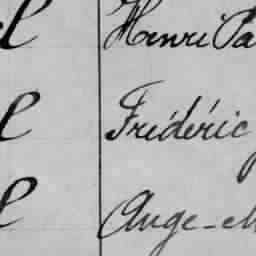 l Henri Pa
l Frédéric
l Ange-M